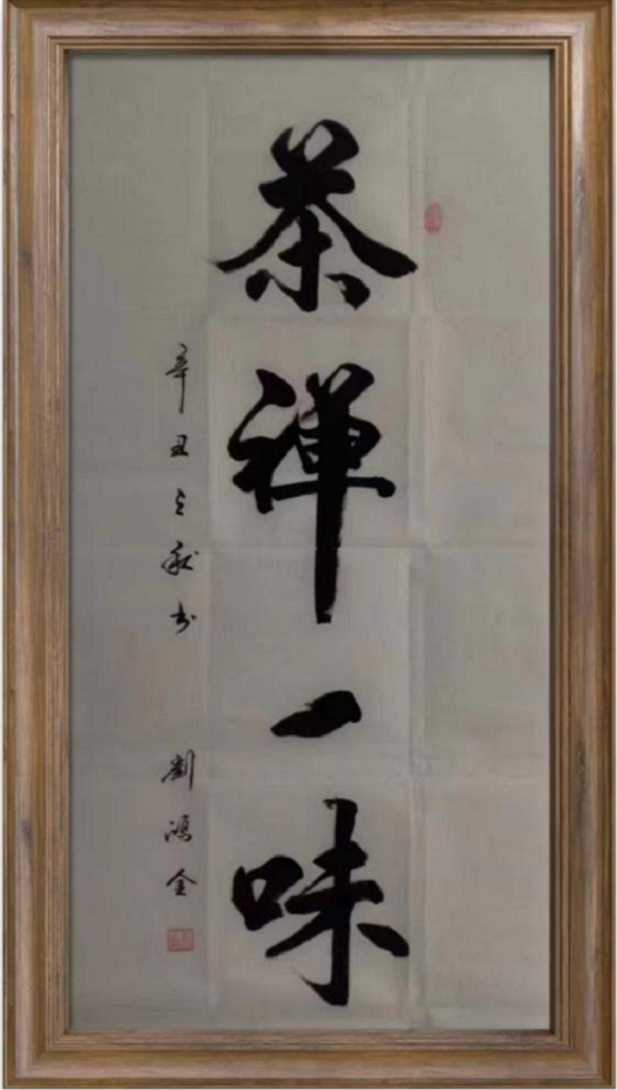 茶禅一味
辛丑之秋书
劉鴻金